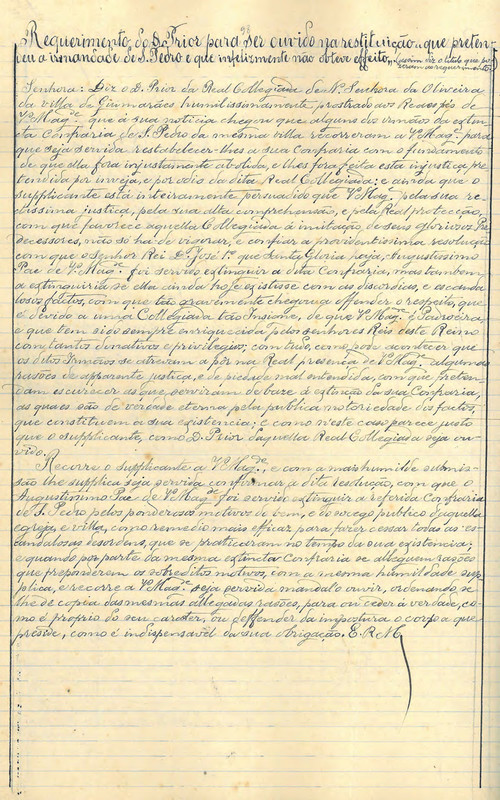 Requerimento do D. Prior para ser ouvido na restituição que preten-
deu a irmandade de S. Pedro e que infelismente não obteve effeito, (assim diz o titulo que po-
seram ao requerimento)
Senhora: Diz o D. Prior da Real Collegiade de N.ª Senhora da Oliveira
da villa de Guimarães, humilissimamente, prostrado aos Reaes pés de
V.ª Mag.de que á sua noticia chegou que alguns dos irmãos da extin-
cta Confraria de S. Pedro da mesma villa recorreram a V.ª Mag.de para
que seja servida restabelecer-lhes a sua Confraria com o fundamento
de que ella fora injustamente abolida, e lhes fora feita esta injustiça pre-
tendida por inveja, e por odio da dita Real Collegiada; e ainda que o
supplicante está inteiramente persuadido que V.ª Mag.de, pela sua re-
ctissima justiça, pela sua alta comprehensão, e pela Real protecção,
com que favorece aquella Collegiada á imitação de seus gloriosos Pre-
decessores, não só ha-de vigorar, e confiar a providentissima resolução
com que o Senhor Rei D. José 1.º que Santa Gloria haja, Augustissimo
Pae de V.ª Mag.de foi servido extinguir a dita Confraria, mas tambem
a extinguiria se ella ainda hoje existisse com as discordias, e escanda-
losos effeitos, com que tão gravemente chegou a offender o respeito, que
é devido a uma Collegiada tão Insigne, de que V.ª Mag.de é Padroeira,
e que tem sido sempre enriquecida pelos senhores Reis deste Reino
com tantos donativos e privilegios; com tudo, como pode acontecer que
os ditos Irmãos se atrevam a pôr na Real presença de V.ª Mag.de algumas
rasões de apparente justiça, e de piedade mal entendida, com que preten-
dam escurecer as que serviram de base á extinção da sua Confraria,
as quaes são de verdade eterna pela publica notoriedade dos factos,
que constituem a sua existencia; e como n'este caso parece justo
que o supplicante, como D. Prior daquella Real Collegiada seja ou-
vido.
Recorre o supplicante a V.ª Mag.de, e com a mais humilde submis-
são lhe supplica seja servida confirmar a dita resolução, com que o
Augustissimo Pae de V.ª Mag.de foi servido extinguir a referida Confraria
de S. Pedro pelos ponderosos motivos do bem, e do socego publico daquella
egreja, e villa, como remedio mais efficaz para fazer cessar todas as es-
candalosas desordens, que se praticaram no tempo da sua existencia;
e quando por parte da mesma extincta Confraria se alleguem razões
que preponderem os sobreditos motivos, com a mesma humildade sup-
plica, e recorre a V.ª Mag.de seja servida mandal-o ouvir, ordenando se
lhe dê copia das mesmas allegadas rasões, para ou ceder á verdade, co-
mo é proprio do seu caracter, ou deffender da impostura o corpo a que
preside, como é indispensavel da sua obrigação. E. R. M.